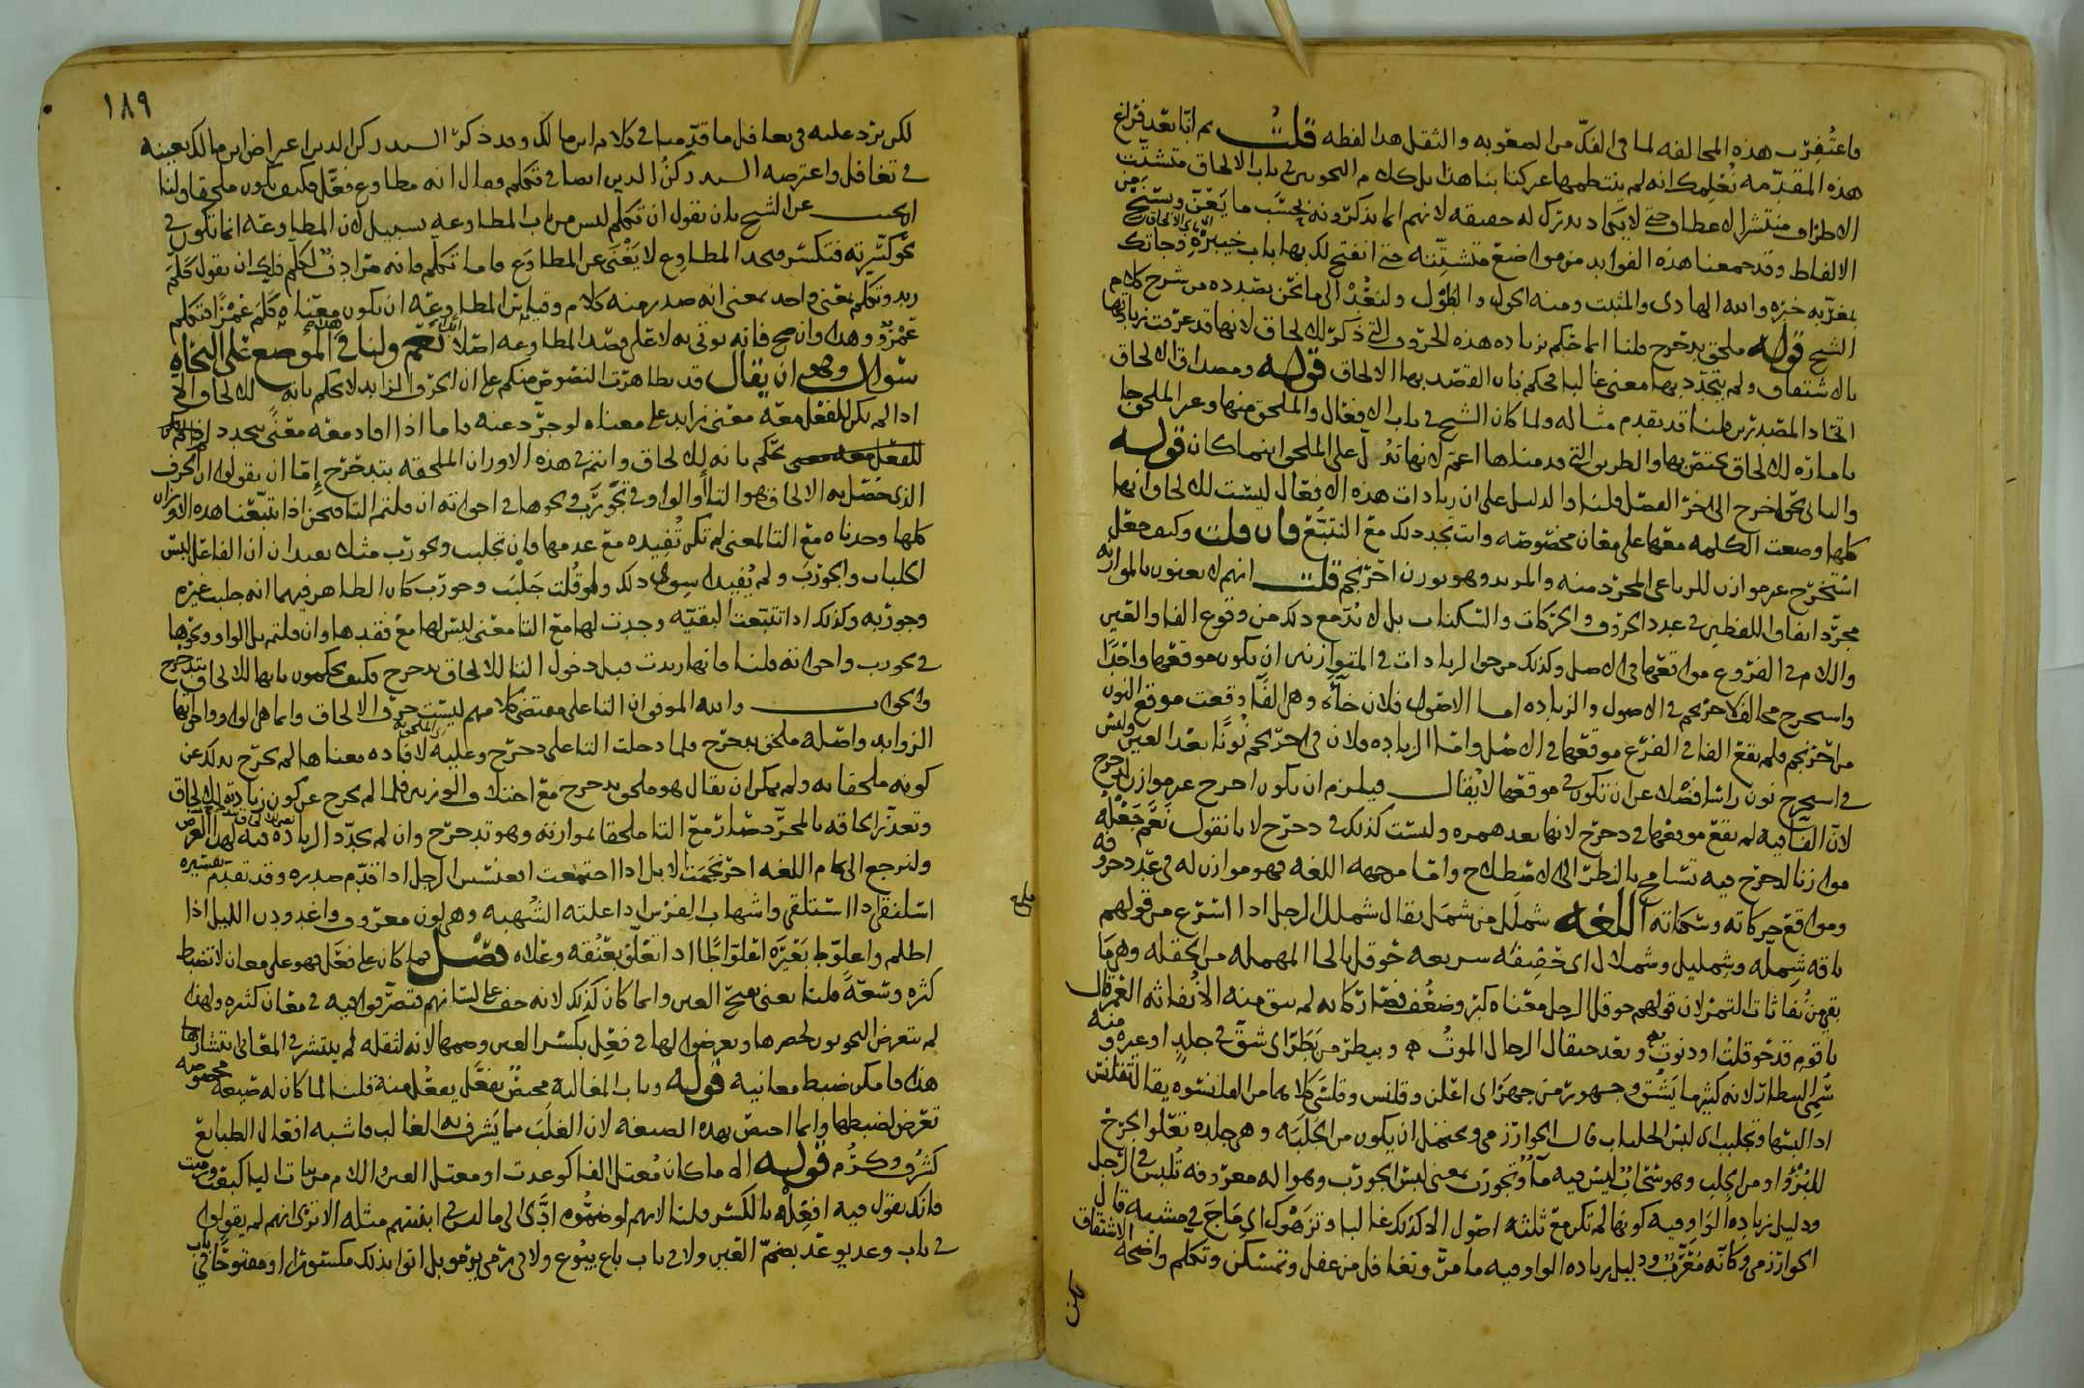 فاغتفرت هذه المخالفه لما في الفك من الصعوبه والثقل هذا لفظه قلت ثم انا بعد فراغ
هذه المقدمه نعلمك انه لم ينتظمها غير كتابنا هذا بل كلام النحويين في باب الالحاق متشتت
الاطراف منتشر الاعطاف حتى لا يكاد يدرك له حقيقه لانهم انما يذكرونه بحسب ما يعن ويسنح من
الالفاظ وقد جمعنا هذه الفوايد من مواضع متشتته حتى انفتح لك بها باب
والله الهادي والمثبت ومنه الحول والطول ولنعد الى ما نحن بصدده من شرح كلام
الشيخ قوله ملحق بدحرج قلنا انما حكم بزياده هذه الحروف التي ذكر للالحاق لانها قد عرفت زيادتها
بالاشتقاق ولم يتجدد بها معنى غالبا فحكم بان القصد بها الالحاق قوله ومصداق الالحاق
اتحاد المصدرين قلنا قد تقدم مثاله ولما كان الشيخ في باب الافعال والملحق منها وغير الملحق جا
باماره للالحاق يختص بها والطريق التي قدمناها اعم لانها تدل على الملحق اينما كان قوله
والثاني نحو اخرج الى اخر الفصل قلنا والدليل على ان زيادات هذه الافعال ليست للالحاق انها
كلها وضعت الكلمه معها على معان مخصوصه وانت تجد ذلك مع التتبع فان قلت وكيف جعل
استخرج غير موازن للرباعي المجرد منه والمزيد وهو بوزن احرنجم قلت انهم لا يعنون بالموازنه
مجرد اتفاق اللفظين في عدد الحروف والحركات والسكنات بل لا بد مع ذلك من وقوع الفا والعين
واللام في الفروع مواقعها في الاصل وكذلك من حق الزيادات في المتوازنين ان يكون موقعها واحدا
واستخرج مخالف لاحرنجم في الاصول والزياده اما الاصول فلان خآه وهي الفا وقعت موقع النون
من احرنجم فلم تقع الفا في الفرع موقعها في الاصل واما الزياده فلان في احرنجم نونا بعد العين وليس
في استخرج نون راسا فضلا عن ان تكون في موقعها لا يقال فيلزم ان يكون اخرج غير موازن لدحرج
لان الفآ فيه لم تقع موقعها في دحرج لانها بعد همزه وليست كذلك في دحرج لانا نقول نعم جعله
موازنا لدحرج فيه تسامح بالنظر الى الاصطلاح واما من جهه اللغه فهو موازن له في عدد حروفه
ومواقع حركاته وسكناته اللغه شملل من شمل يقال شملل الرجل اذا اسرع من قولهم
ناقه شمله وشمليل وشملال اي خفيفه سريعه حوقل بالحا المهمله من الحقله وهي ما
بقي من نفاثات التمر لان قولهم حوقل الرجل معناه كبر وضعف فصار كانه لم يبق منه الا نفاثه العمر قال
يا قوم قد حوقلت او دنوت ه وبعد حيقال الرجال الموت ه وبيطر من بطر اي شق في جلد او غيره ومنه
سمي البيطار لانه كثيرا ما يشق وجهور من جهر اي اعلن وقلنس وقلسى كلاهما من القلنسوه يقال تقلنس
اذا لبسها وتجلبب اي لبس الجلباب قال الخوارزمي ويحتمل ان يكون من الجلبه وهي جلده تعلو الجرح
للبرؤ او من الجلب وهو سحاب ليس فيه مآ وتجورب بمعنى لبس الجورب وهو آله معروفه تلبس في الرجل
ودليل زياده الواو فيه كونها لم تكن مع ثلثه اصول الا كذلك غالبا وترهوك اي ماج في مشيه قال
الخوارزمي وكانه معرب ودليل زياده الواو فيه ما مر وتغافل من غفل وتمسكن وتكلم واضحه الاشتقاق
لكن
١٨٩
لكن يرد عليه في تغافل ما قدمنا في كلام ابن مالك وقد ذكر السيد ركن الدين اعتراض ابن مالك بعينه
في تغافل واعترضه السيد ركن الدين ايضا في تكلم وقال انه مطاوع فعل فكيف يكون ملحقا ولنا
ان نجيب عن الشيخ بان نقول ان تكلم ليس من باب المطاوعه بسبيل لان المطاوعه انما تكون في
نحو كسرته فتكسر فتجد المطاوع لا يغنى عن المطاوع فاما تكلم فانه مرادف لكلم فلك ان تقول كلم
زيد وتكلم بمعنى واحد بمعنى انه صدر منه كلام وقياس المطاوعه ان يكون معناه كلم عمرا فتكلم
عمرو وهذا وان صح فانه يوتى به لا على قصد المطاوعه اصلا نعم ولنا في هذا الموضع على النحاه
سؤال وهو ان يقال قد تظاهرت النصوص منكم على ان الحرف الزايد لا يحكم بانه للالحاق الا
اذا لم يكن للفعل معه معنى زايد على معناه لو جرد عنه فاما اذا افاد معه معنى يتجدد لم
يحكم بانه للالحاق وانتم في هذه الاوزان الملحقه بتدحرج إما ان يقولوا ان الحرف
الذي حصل به الالحاق هو التا أو الواو في تجورب ونحوها في اخواته ان قلتم التا فنحن اذا تتبعنا هذه الاوزان
كلها وجدناه مع التا لمعنى لم تكن تفيده مع عدمها فان تجلبب وتجورب مثلا يفيدان ان الفاعل لبس
الجلباب والجورب ولم يفيدا سوى ذلك ولو قلت جلبب وجورب كان الظاهر فيهما انه جلبب غيره
وجوربه وكذلك اذا تتبعت البقيه وجدت لها مع التا معنى ليس لها مع فقدها وان قلتم بل الواو ونحوها
في تجورب واخواته قلنا فانها زيدت قبل دخول التا للالحاق بدحرج فكيف تحكمون بانها للالحاق بتدحرج
والجواب والله الموفق ان التا على مقتضى كلامهم ليست حرف الالحاق وانما هي الواو واخواتها
الزوايد واصله ملحق بدحرج فلما دخلت التا على دحرج وعليه لافاده معناها لم يخرج بذلك عن
كونه ملحقا به ولم يمكن ان يقال هو ملحق بدحرج مع اختلاف الوزنين فلما لم يخرج عن كون زيادته للالحاق
وتعذر الحاقه بالمجرد صار مع التا ملحقا بموازنه وهو تدحرج وان لم تجدد الزياده فيه لهذا الغرض
ولنرجع الى كلام اللغه احرنجمت الابل اذا اجتمعت اقعنسس الرجل اذا قدم صدره وقد تقدم تفسيره
اسلنقى اذا استلقى واشهاب الفرس اذا علته الشهبه وهي لون معروف واغدودن الليل اذا
اظلم واعلوط بعيره اعلواطا اذا تعلق بعنقه وعلاه فصل فما كان على فعل فهو على معان لا تضبط
كثره وسعةً قلنا يعني بفتح العين وانما كان كذلك لانه خف على لسانهم فتصرفوا فيه في معان كثيره ولهذا
لم يتعرض النحويون لحصرها وتعرضوا لها في فعل بكسر العين وضمها لانه لثقله لم ينتشر في المعاني انتشارها
هذه فامكن ضبط معانيه قوله وباب المغالبه مختص بفعل يفعل منه قلنا لما كان له صيغه مخصوصه
تعرض لضبطها وانما اختص بهذه الصيغه لان الغلب مما يشرف به الغالب فاشبه افعال الطبايع
كشرف وكرم قوله الا ما كان معتل الفا كوعدت او معتل العين واللام من بنات اليا كبعت ورميت
فانك تقول فيه افعله بالكسر قلنا لانهم لو ضموه ادى الى ما ليس في ابنيتهم مثله الا ترى انهم لم يقولوا
في باب وعد يوعد بضم العين ولا في باب باع يبوع ولا في رمى يرمو بل اتوا بذلك مكسورا او مفتوحا في باب